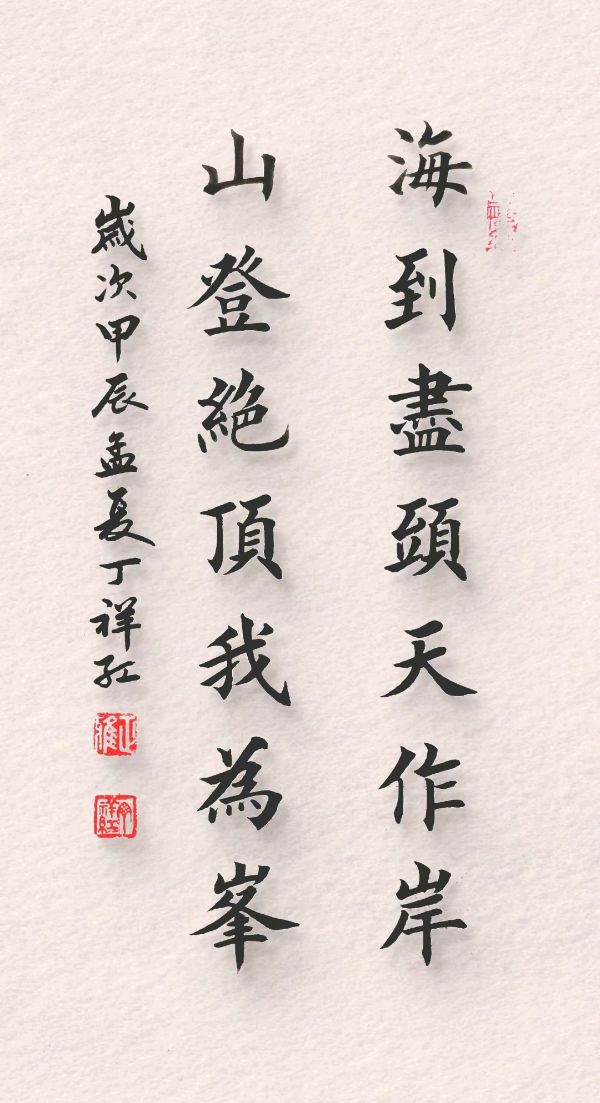 海到盡頭天作岸
山登絕頂我為峯
歲次甲辰孟夏丁祥红